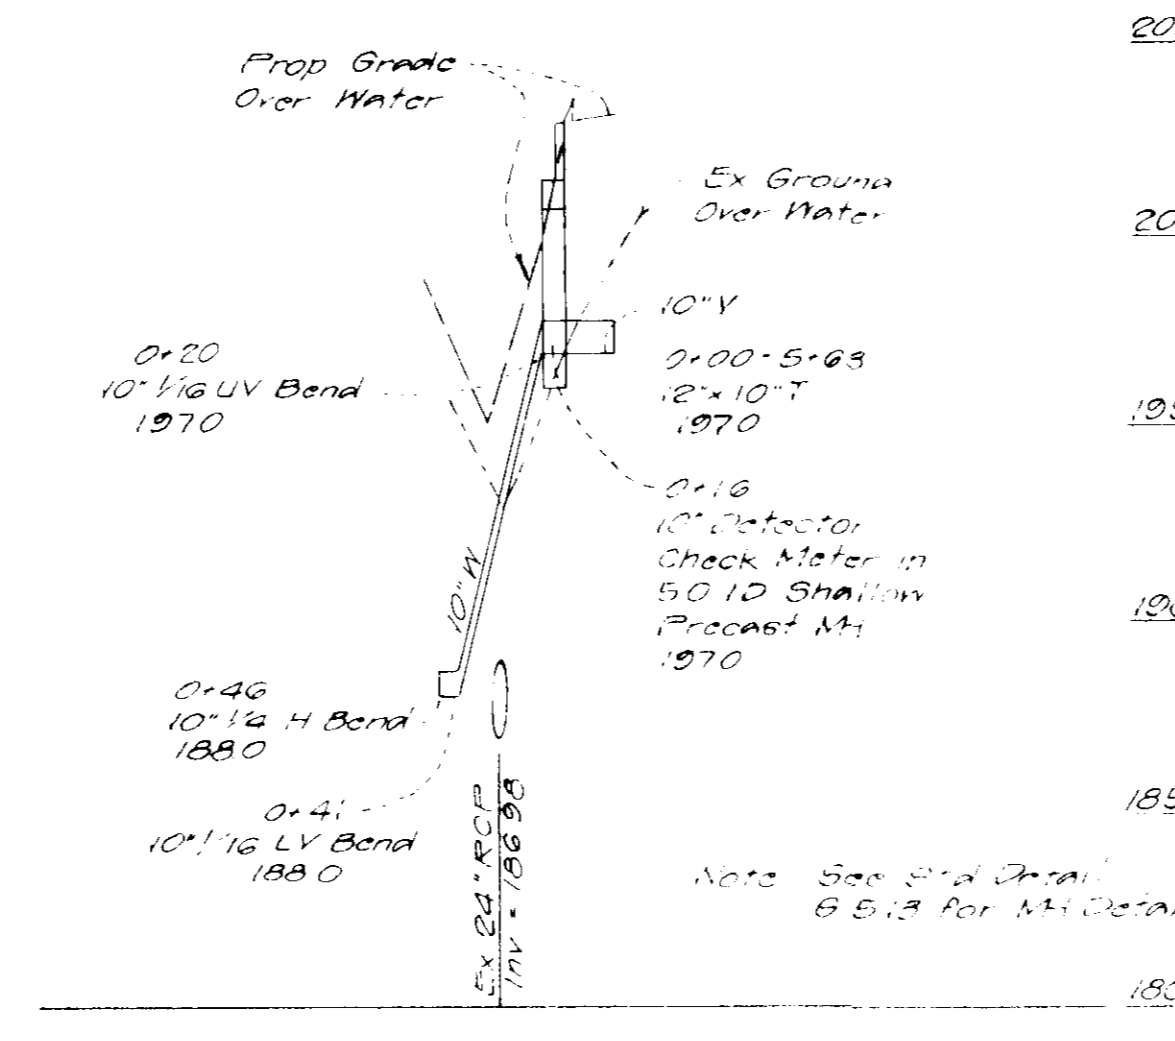 Prop Grade
Over Water
Ex Ground
Over Water
10" Y
0+00 = 5+63
12" x 10" T
197.0
0+20
10" 1/16 UV Bend
197.0
0+16
10" Detector
Check Meter in
5.0 ID Shallow
Precast MH
197.0
10" W
0+46
10" 1/4 H Bend
188.0
0+41
10" 1/16 LV Bend
188.0
Ex 24" RCP
Inv = 186.98
Note See Std Detail
G 5.13 for MH Detai
20
20
195
190
185
180